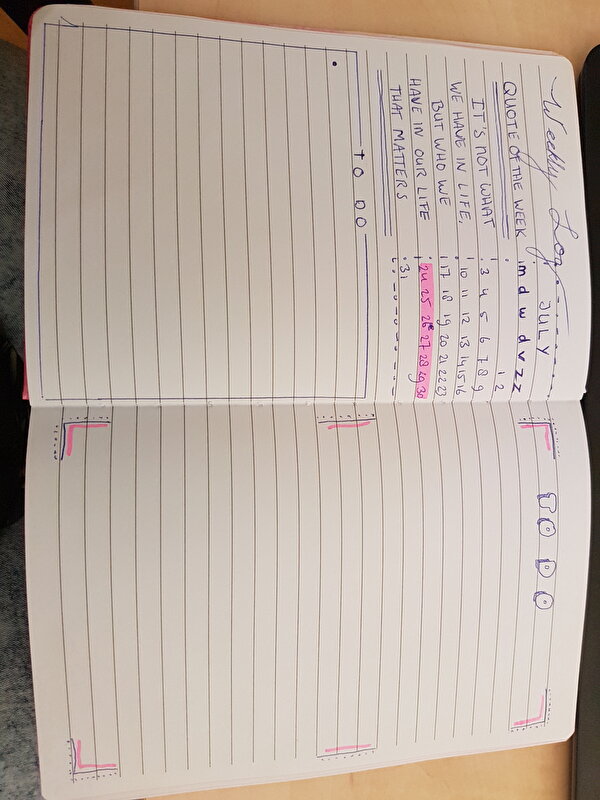 Weekly Log
QUOTE OF THE WEEK
IT'S NOT WHAT
WE HAVE IN LIFE,
BUT WHO WE
HAVE IN OUR LIFE
THAT MATTERS
JULY
m d w d v z z
1 2
3 4 5 6 7 8 9
10 11 12 13 14 15 16
17 18 19 20 21 22 23
24 25 26 27 28 29 30
31
TO DO
TO DO